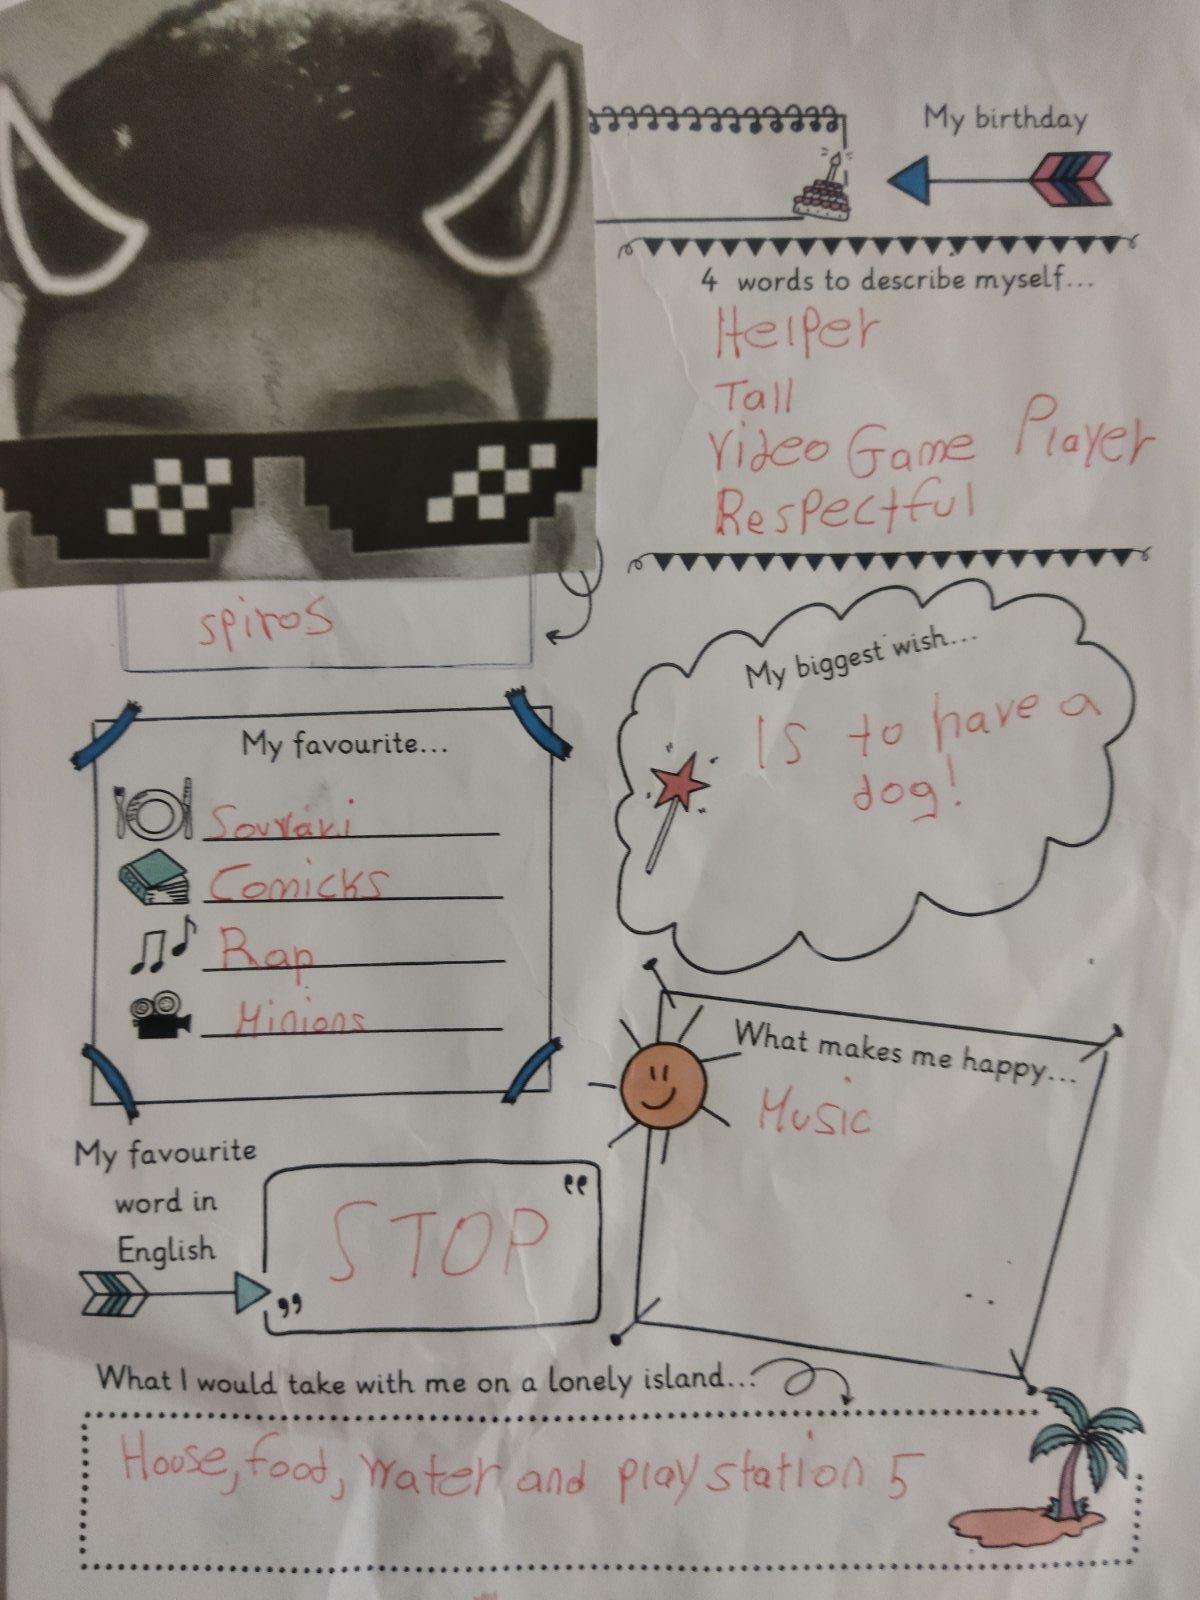 My birthday
4 words to describe myself...
Helper
Tall
Video Game Player
Respectful
spiros
My biggest wish...
Is to have a
dog!
My favourite...
Souvlaki
Comicks
Rap
Minions
What makes me happy...
Music
My favourite
word in
English
"STOP"
What I would take with me on a lonely island...
House, food, water and play station 5